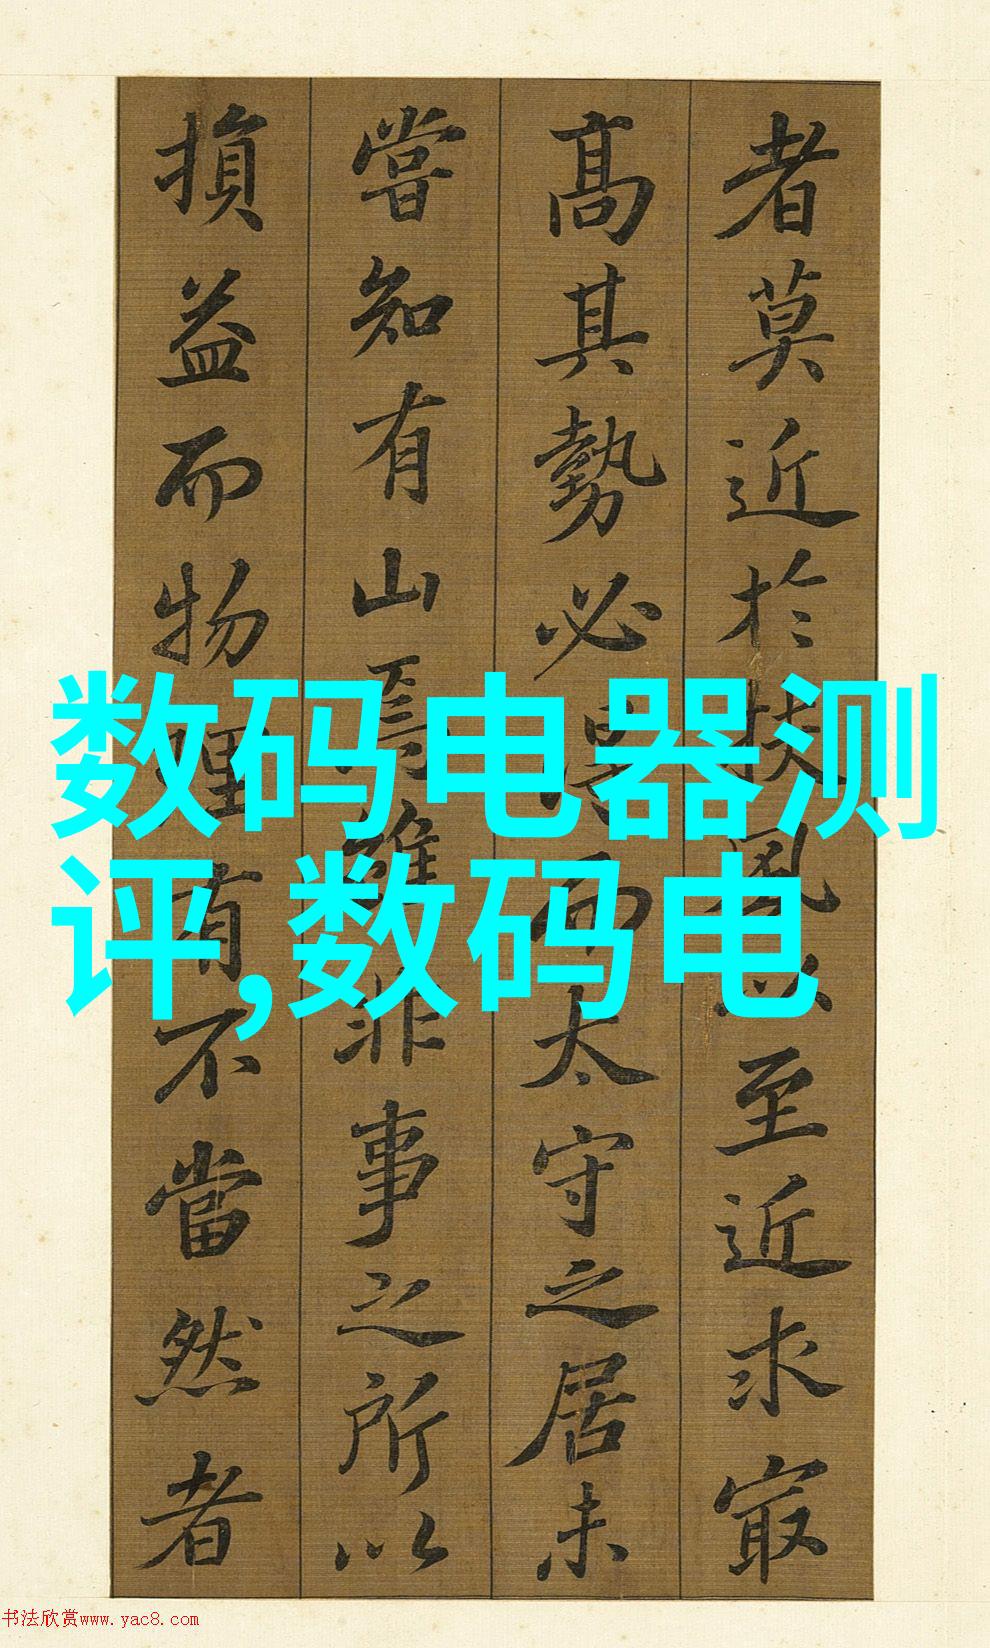 者莫近於扶風以至近求㝡
高其勢必得而太守之居未
嘗知有山焉雖非事之所以
損益而物理有不當然者
数码电器测
评,数码电
书法欣赏www.yac8.com